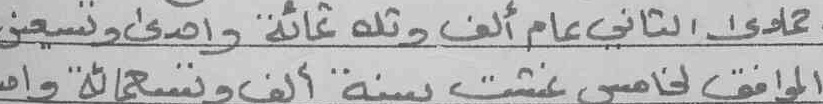 جمادى الثاني عام ألف وثلاثمائة واحدى وتسعين
الموافق لخامس غشت سنة ألف وتسعمائة